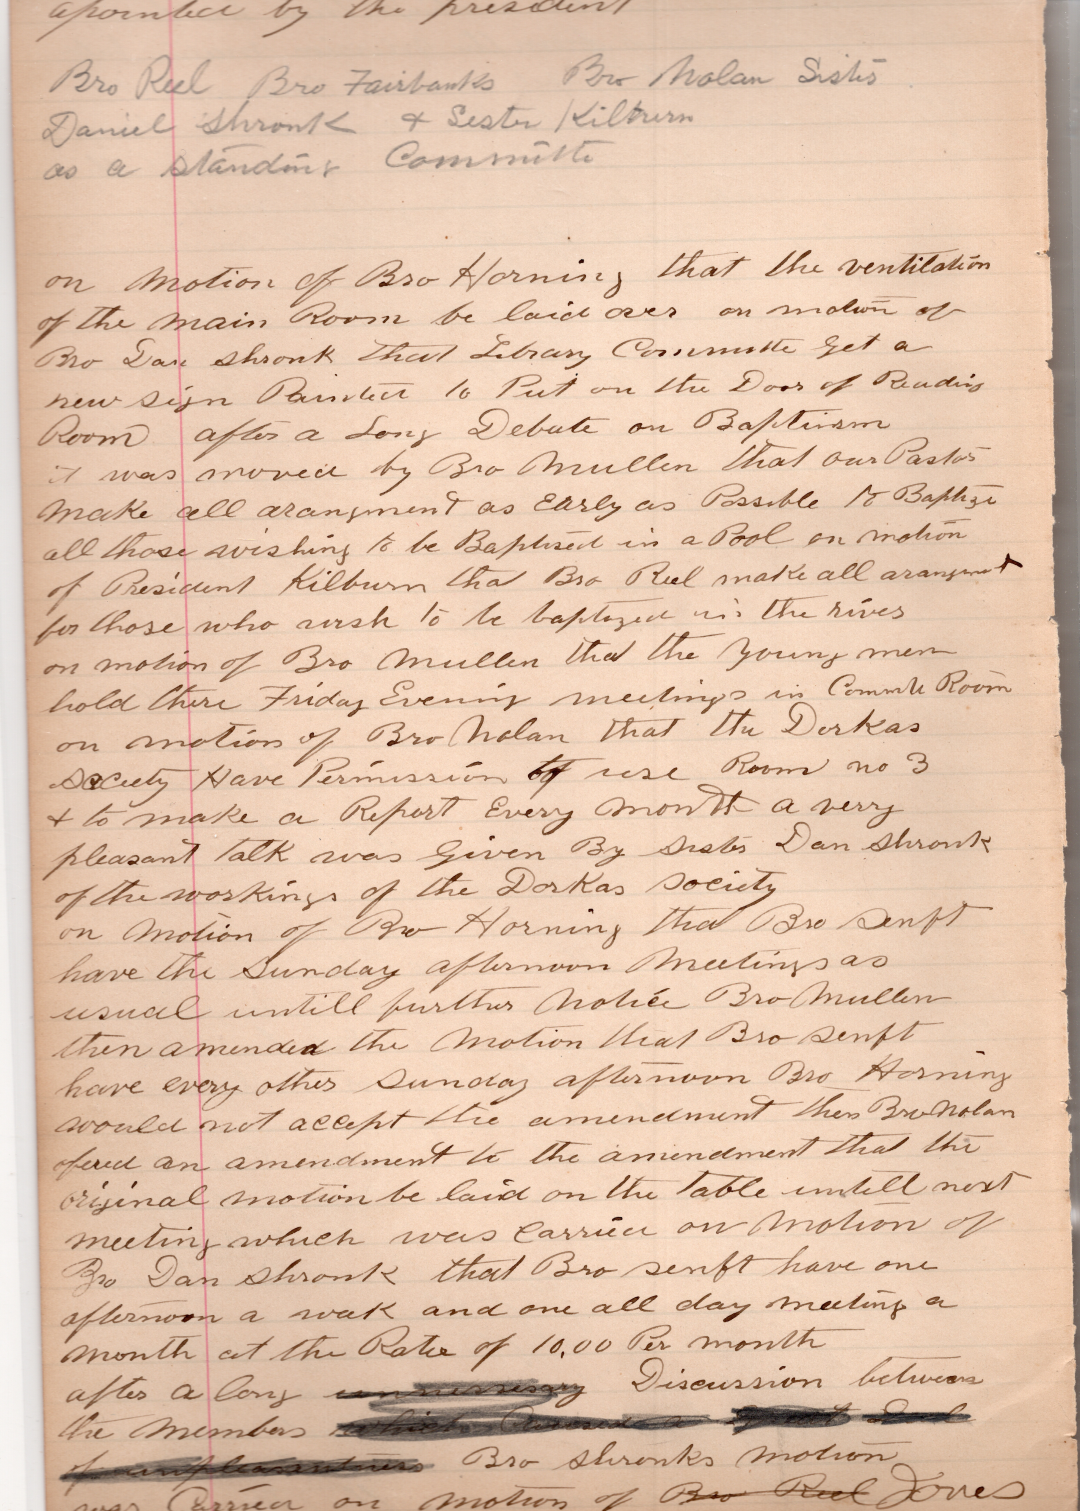 apointed by the president
Bro Reel Bro Fairbanks Bro Nolan Sister
Daniel Shronk & Sester Kilburn
as a standing Committe
on motion of Bro Horning that the ventilation
of the main Room be laid over on motion of
Bro Dan shronk that Library Committe get a
new sign Painted to Put on the Door of Reading
Room after a Long Debate on Baptism
it was moved by Bro Mullen that our Pastor
make all arangment as Early as Possible to Baptize
all those wishing to be Baptised in a Pool on motion
of President Kilburn that Bro Reel make all arangment
for those who wish to be baptized in the river
on motion of Bro Mullen that the young men
hold there Friday Evening meetings in Committe Room
on motion of Bro Nolan that the Dorkas
society Have Permission to use Room no 3
& to make a Report Every month a verry
pleasant talk was given By sister Dan shronk
of the workings of the Dorkas society
on motion of Bro Horning that Bro senft
have the Sunday afternoon Meetings as
usual untill further notice Bro Mullen
then amended the motion that Bro senft
have every other Sunday afternoon Bro Horning
would not accept the amendment then Bro Nolan
ofered an amendment to the amendment that the
original motion be laid on the table untill next
meeting which was carried on motion of
Bro Dan shronk that Bro senft have one
afternoon a week and one all day meeting a
month at the Rate of 10.00 Per month
after a long unnessesary Discussion between
the members which Caused a great Deal
of unpleasantness Bro shronks motion
was Carried on motion of Bro Reel Jones